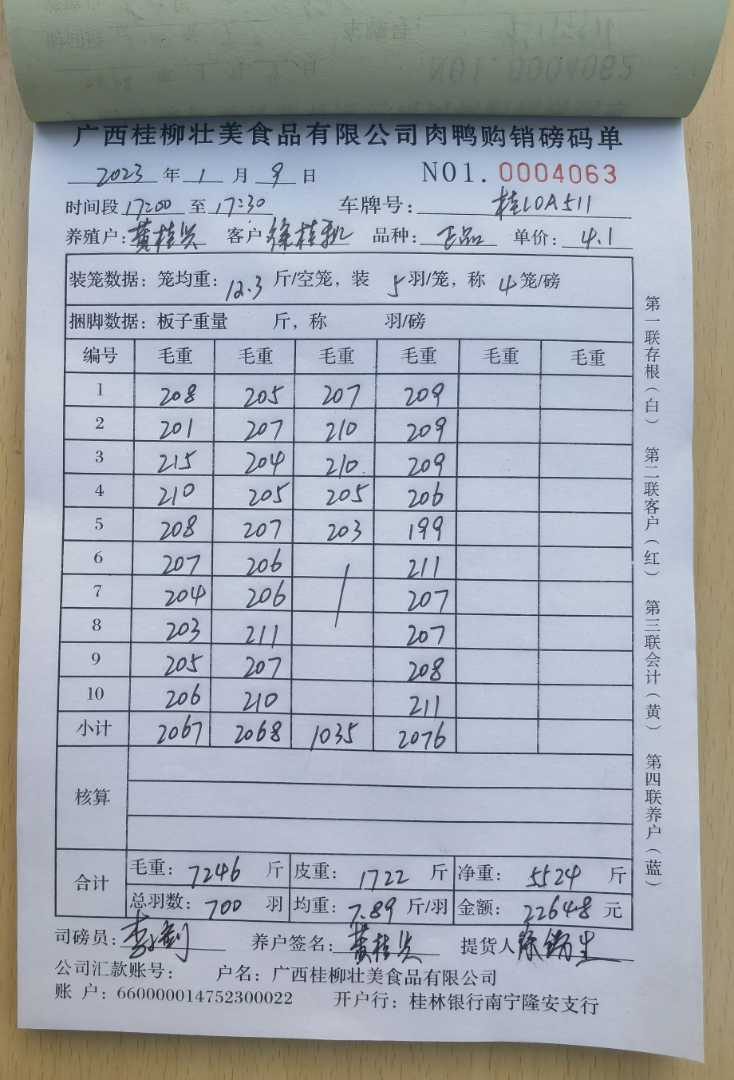 广西桂柳壮美食品有限公司肉鸭购销磅码单
2023 年 1 月 9 日 NO1. 0004063
时间段 17:00 至 17:30 车牌号: 桂10A511
养殖户: 黄桂 客户 徐桂 品种: 正品 单价: 4.1
装笼数据: 笼均重: 12.3 斤/空笼, 装 5 羽/笼, 称 4 笼/磅
捆脚数据: 板子重量 斤, 称 羽/磅
编号 毛重 毛重 毛重 毛重 毛重 毛重
1 208 205 207 209
2 201 207 210 209
3 215 204 210 209
4 210 205 205 206
5 208 207 203 199
6 207 206 / 211
7 204 206 207
8 203 211 207
9 205 207 208
10 206 210 211
小计 2067 2068 1035 2076
核算
合计 毛重: 7246 斤 皮重: 1722 斤 净重: 5524 斤
总羽数: 700 羽 均重: 7.89 斤/羽 金额: 22648 元
司磅员: 李 养户签名: 黄桂 提货人 徐
公司汇款账号: 户名: 广西桂柳壮美食品有限公司
账 户: 660000014752300022 开户行: 桂林银行南宁隆安支行
第一联存根(白) 第二联客户(红) 第三联会计(黄) 第四联养户(蓝)